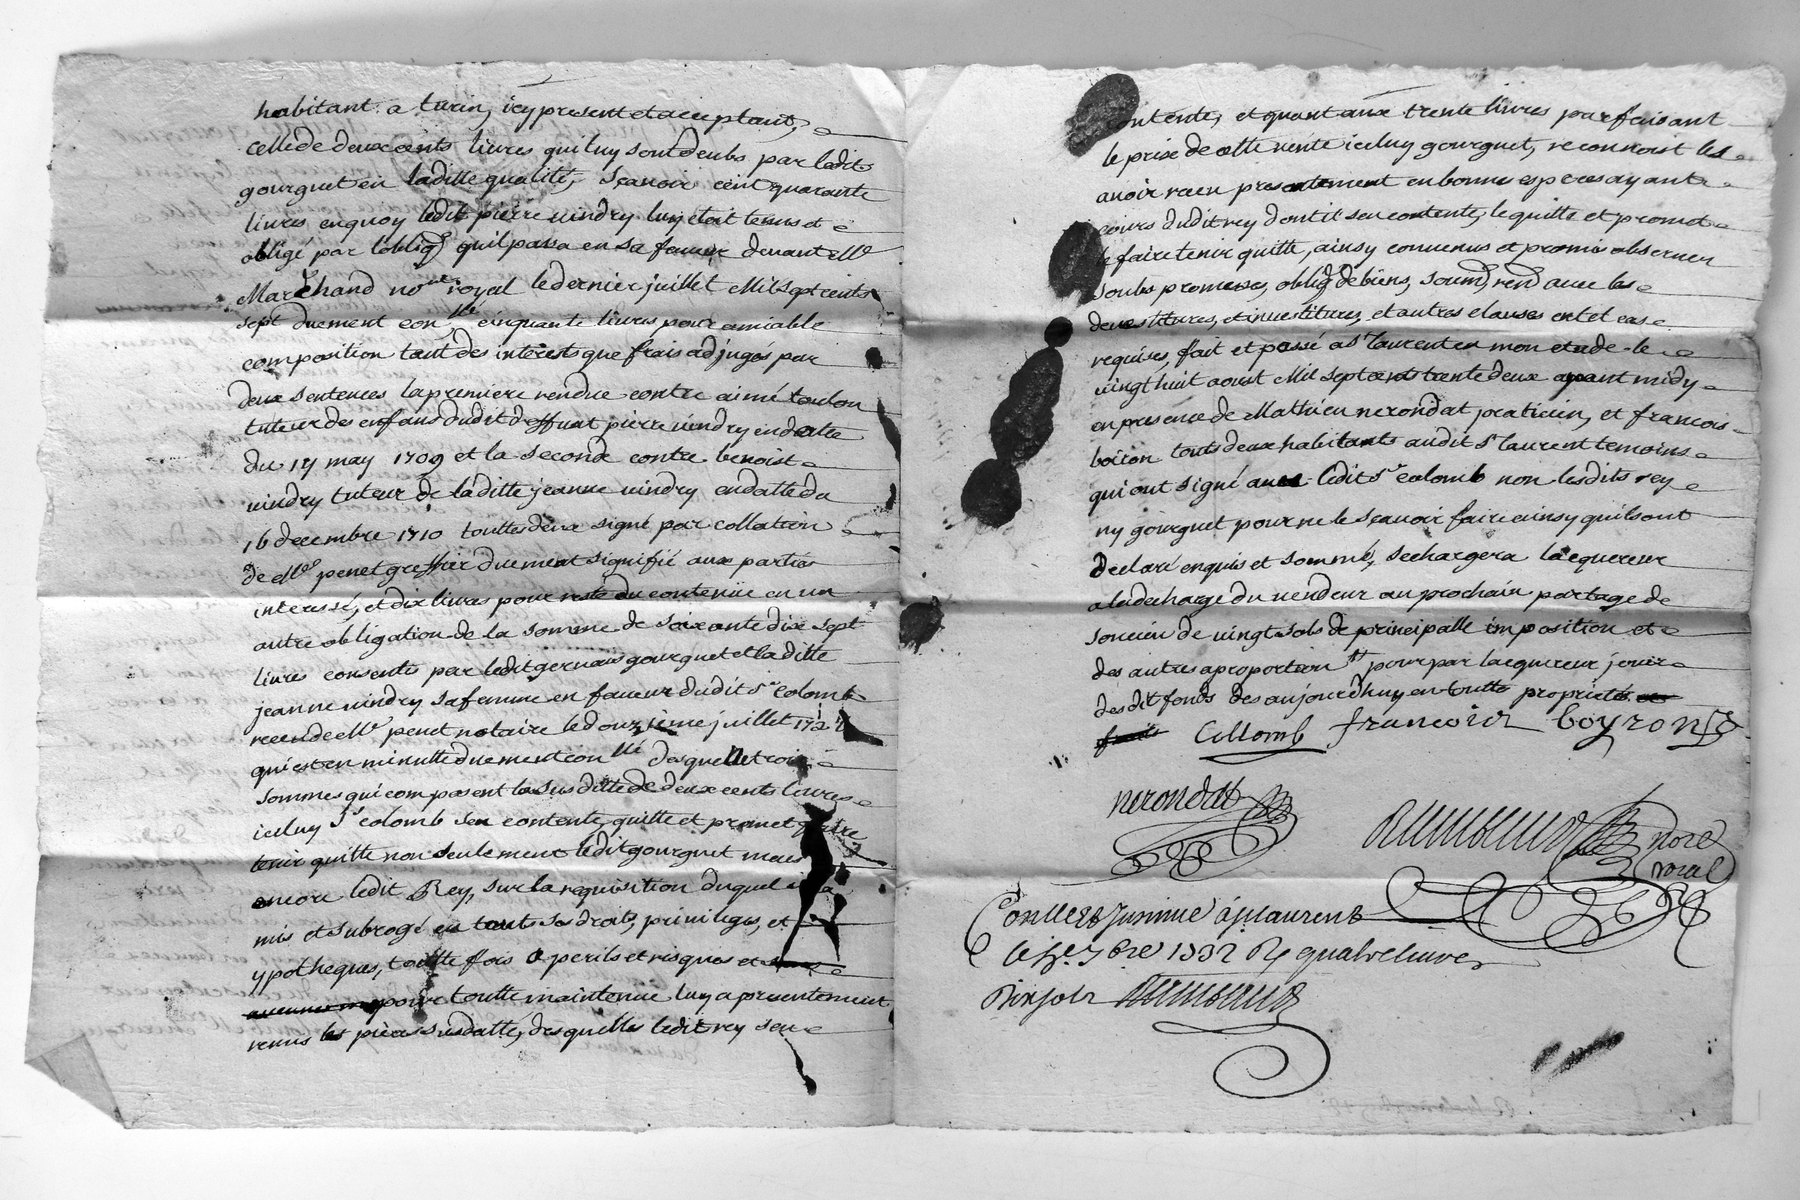 habitant a turin, icy present et acceptant,
celle de deux cents livres qui luy sont deubs par ledit
gourguet en laditte qualité, sçavoir cent quarante
livres en quoy ledit pierre vindry luy étoit tenus et
obligé par l'oblig.on qu'il passa en sa faveur devant Me
Marchand no.re royal le dernier juillet Mil sept cents
sept duement con.llé cinquante livres pour amiable
composition tant des interests que frais adjugés par
deux sentences la premiere rendue contre aimé toulon
tuteur des enfans dudit deffunt pierre vindry en datte
du 17 may 1709 et la seconde contre benoist
vindry tuteur de laditte jeanne vindry en datte du
16 decembre 1710 touttes deux signé par collation
de Me penet greffier duement signifié aux parties
interessé, et dix livres pour reste du contenue en un
autre obligation de la somme de soixante dix sept
livres consentis par ledit gervais gourguet et laditte
jeanne vindry sa femme en faveur dudit Sr colomb
receu de Me penet notaire le douzième juillet
qui est en minutte duement con.llé desquelles trois
sommes qui composent la susditte de deux cents livres
iceluy Sr colomb s'en contente, quitte et promet faire
tenir quitte non seulement ledit gourguet mais
encore ledit Rey, sur la requisition duquel il l'a
mis et subrogé en tout ses droits, privileges, et
ypotheques, toutte fois a perils et risques et
pour toutte maintenue luy a presentement
remis les pièces susdatté, desquelles ledit rey s'en
contente, et quant aux trente livres parfaisant
le prix de cette vente iceluy gourguet, reconnoist les
avoir receu presentement en bonnes especes ayant
cours dudit rey dont il s'en contente, le quitte et promet
le faire tenir quitte, ainsy convenus et promis observer
soubs promesses, oblig.on de biens, soum.on rend avec les
devestitures, et investitures, et autres clauses en tel cas
requises, fait et passé a St laurent en mon etude le
vingt huit aoust Mil sept cents trente deux avant midy
en presence de Mathieu nerondat praticien, et francois
boiron touts deux habitants audit St laurent temoins
qui ont signé avec ledit Sr colomb non lesdits rey
ny gourguet pour ne le sçavoir faire ainsy qu'ils ont
declaré enquis et sommés, se chargera l'acquereur
a la decharge du vendeur au prochain partage de
son cien de vingt sols de principalle imposition et
des autres a proportion pour par l'acquereur jouir
desdit fonds des aujourd'huy en toutte proprieté et
Collomb francois boyron
nerondat
nore
roial
Conllé et Insinué à St laurent
le 7bre 1732 Rs quatre livres
dix sols